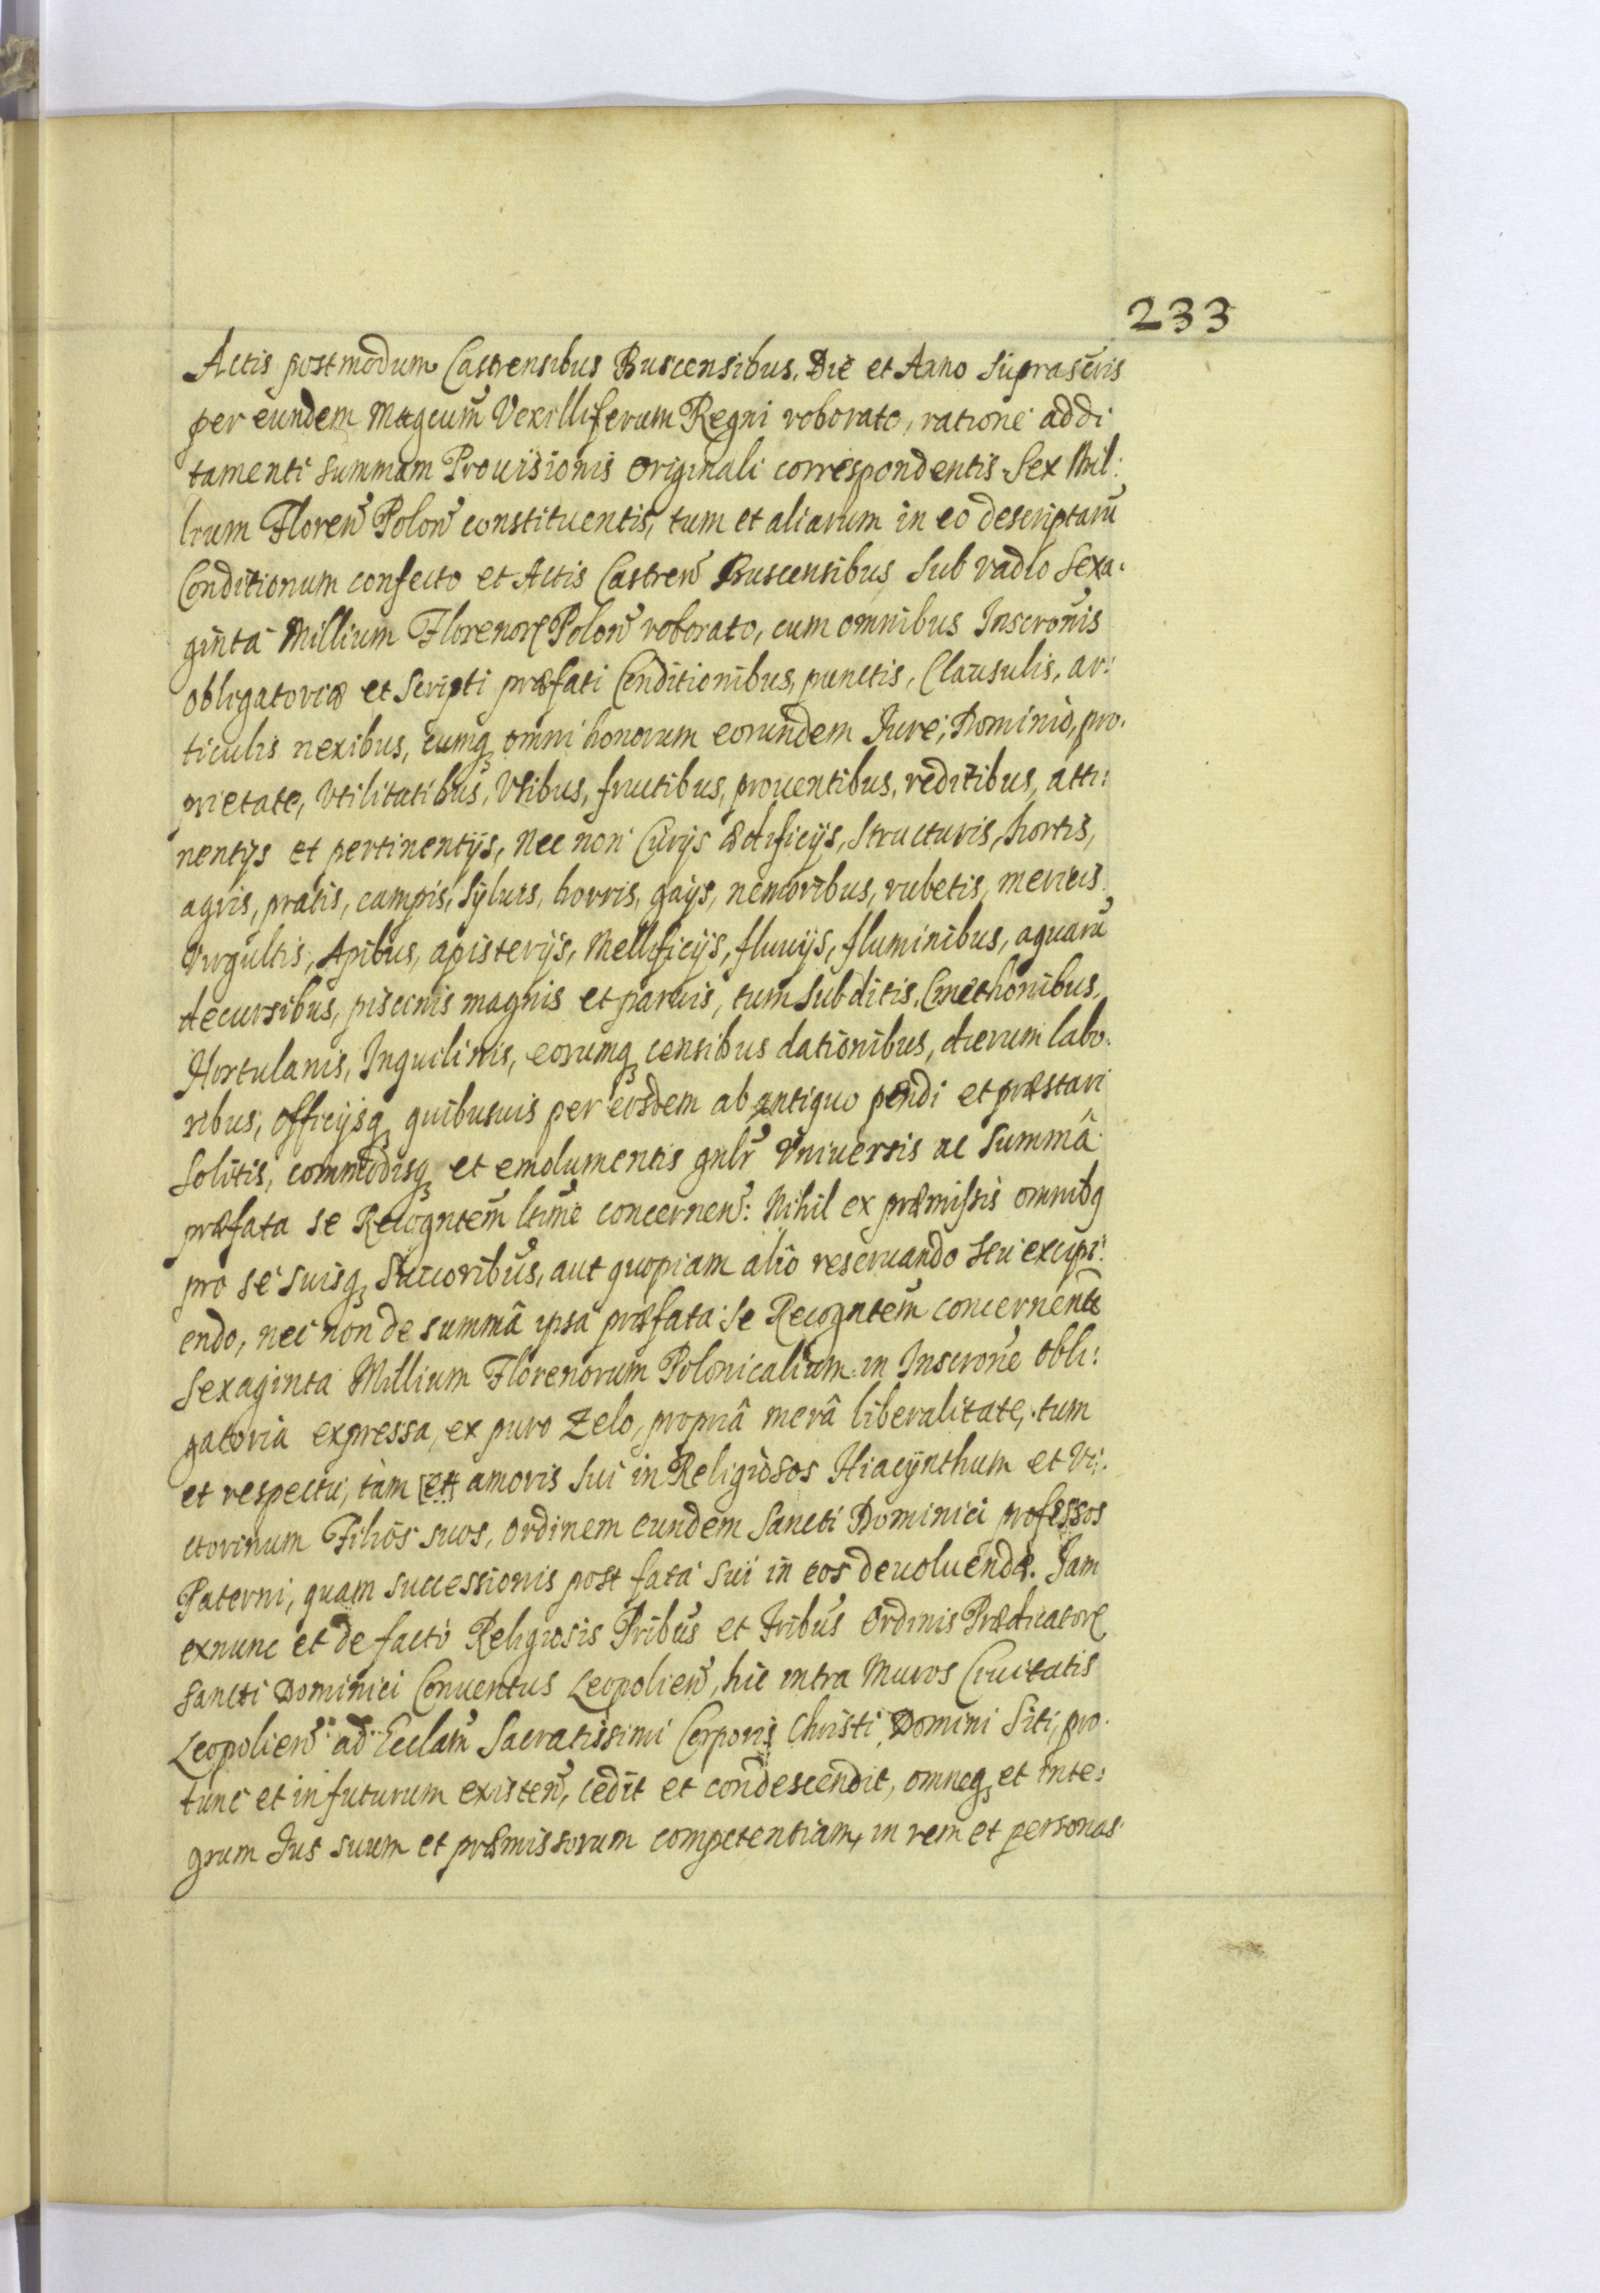 233
Actis postmodum Castrensibus Buscensibus, Die et Anno Suprascris
per eundem Magcum Vexilliferum Regni roborato, ratione addi
tamenti summam Prouisionis originali correspondentis Sex Mil:
lium Floren̄ Polon̄ constituentis, tum et aliarum in eo descriptarū
Conditionum confecto et Actis Castren̄ Buscensibus sub vadio Sexa:
ginta Millium Florenorꝫ Polon̄ roborato, cum omnibus Inscronis
obligatoriæ et Scripti præfati Conditionibus, punctis, Clausulis, ar:
ticulis nexibus, cumqꝫ omni bonorum eorundem Iure, Dominio, pro.
prietate, Vtilitatibus, Vsibus, fructibus, prouentibus, reditibus, atti:
nentijs et pertinentijs, Nec non Curijs ædificijs, Structuris, hortis,
agris, pratis, campis, Syluis, borris, gays, nemoribus, rubetis, mericis
Virgultis, Apibus, apisterijs, Mellificijs, fluuijs, fluminibus, aquarū
decursibus, piscinis magnis et paruis, tum Subditis, Cmethonibus,
Hortulanis, Inquilinis, eorumqꝫ censibus dationibus, dierum labo.
ribus, officijsqꝫ quibusuis per eosdem ab antiquo pendi et præstari
Solitis, commodisqꝫ et emolumentis gnlr̄ Vniuersis ac Summâ
præfata se Recogntem̄ ltime concernen̄: Nihil ex præmissis omnibꝗ
pro se suisqꝫ Succoribus, aut quopiam alio reseruando seu excipi:
endo, nec non de summâ ipsa præfata Se Recogntem̄ concernente
Sexaginta Millium Florenorum Polonicalium in Inscrone obli:
gatoria expressa, ex puro Zelo, propriâ merâ liberalitate, tum
et respectu, tam [et] amoris Sui in Religiosos Hiacynthum et Vi:
ctorinum Filios suos, Ordinem eundem Sancti Dominici professos
Paterni, quam successionis post fata sui in eos deuoluendæ. Jam
exnunc et de facto Religiosis Pribus et Fribus Ordinis Prædicatorꝫ
Sancti Dominici Conuentus Leopolien̄, hic intra Muros Ciuitatis
Leopolien̄ ad Ecclam̄ Sacratissimi Corporis Christi Domini Siti, pro.
tunc et in futurum existen̄, cedit et condescendit, omneqꝫ et inte:
grum Ius suum et præmissorum competentiam, in rem et personas